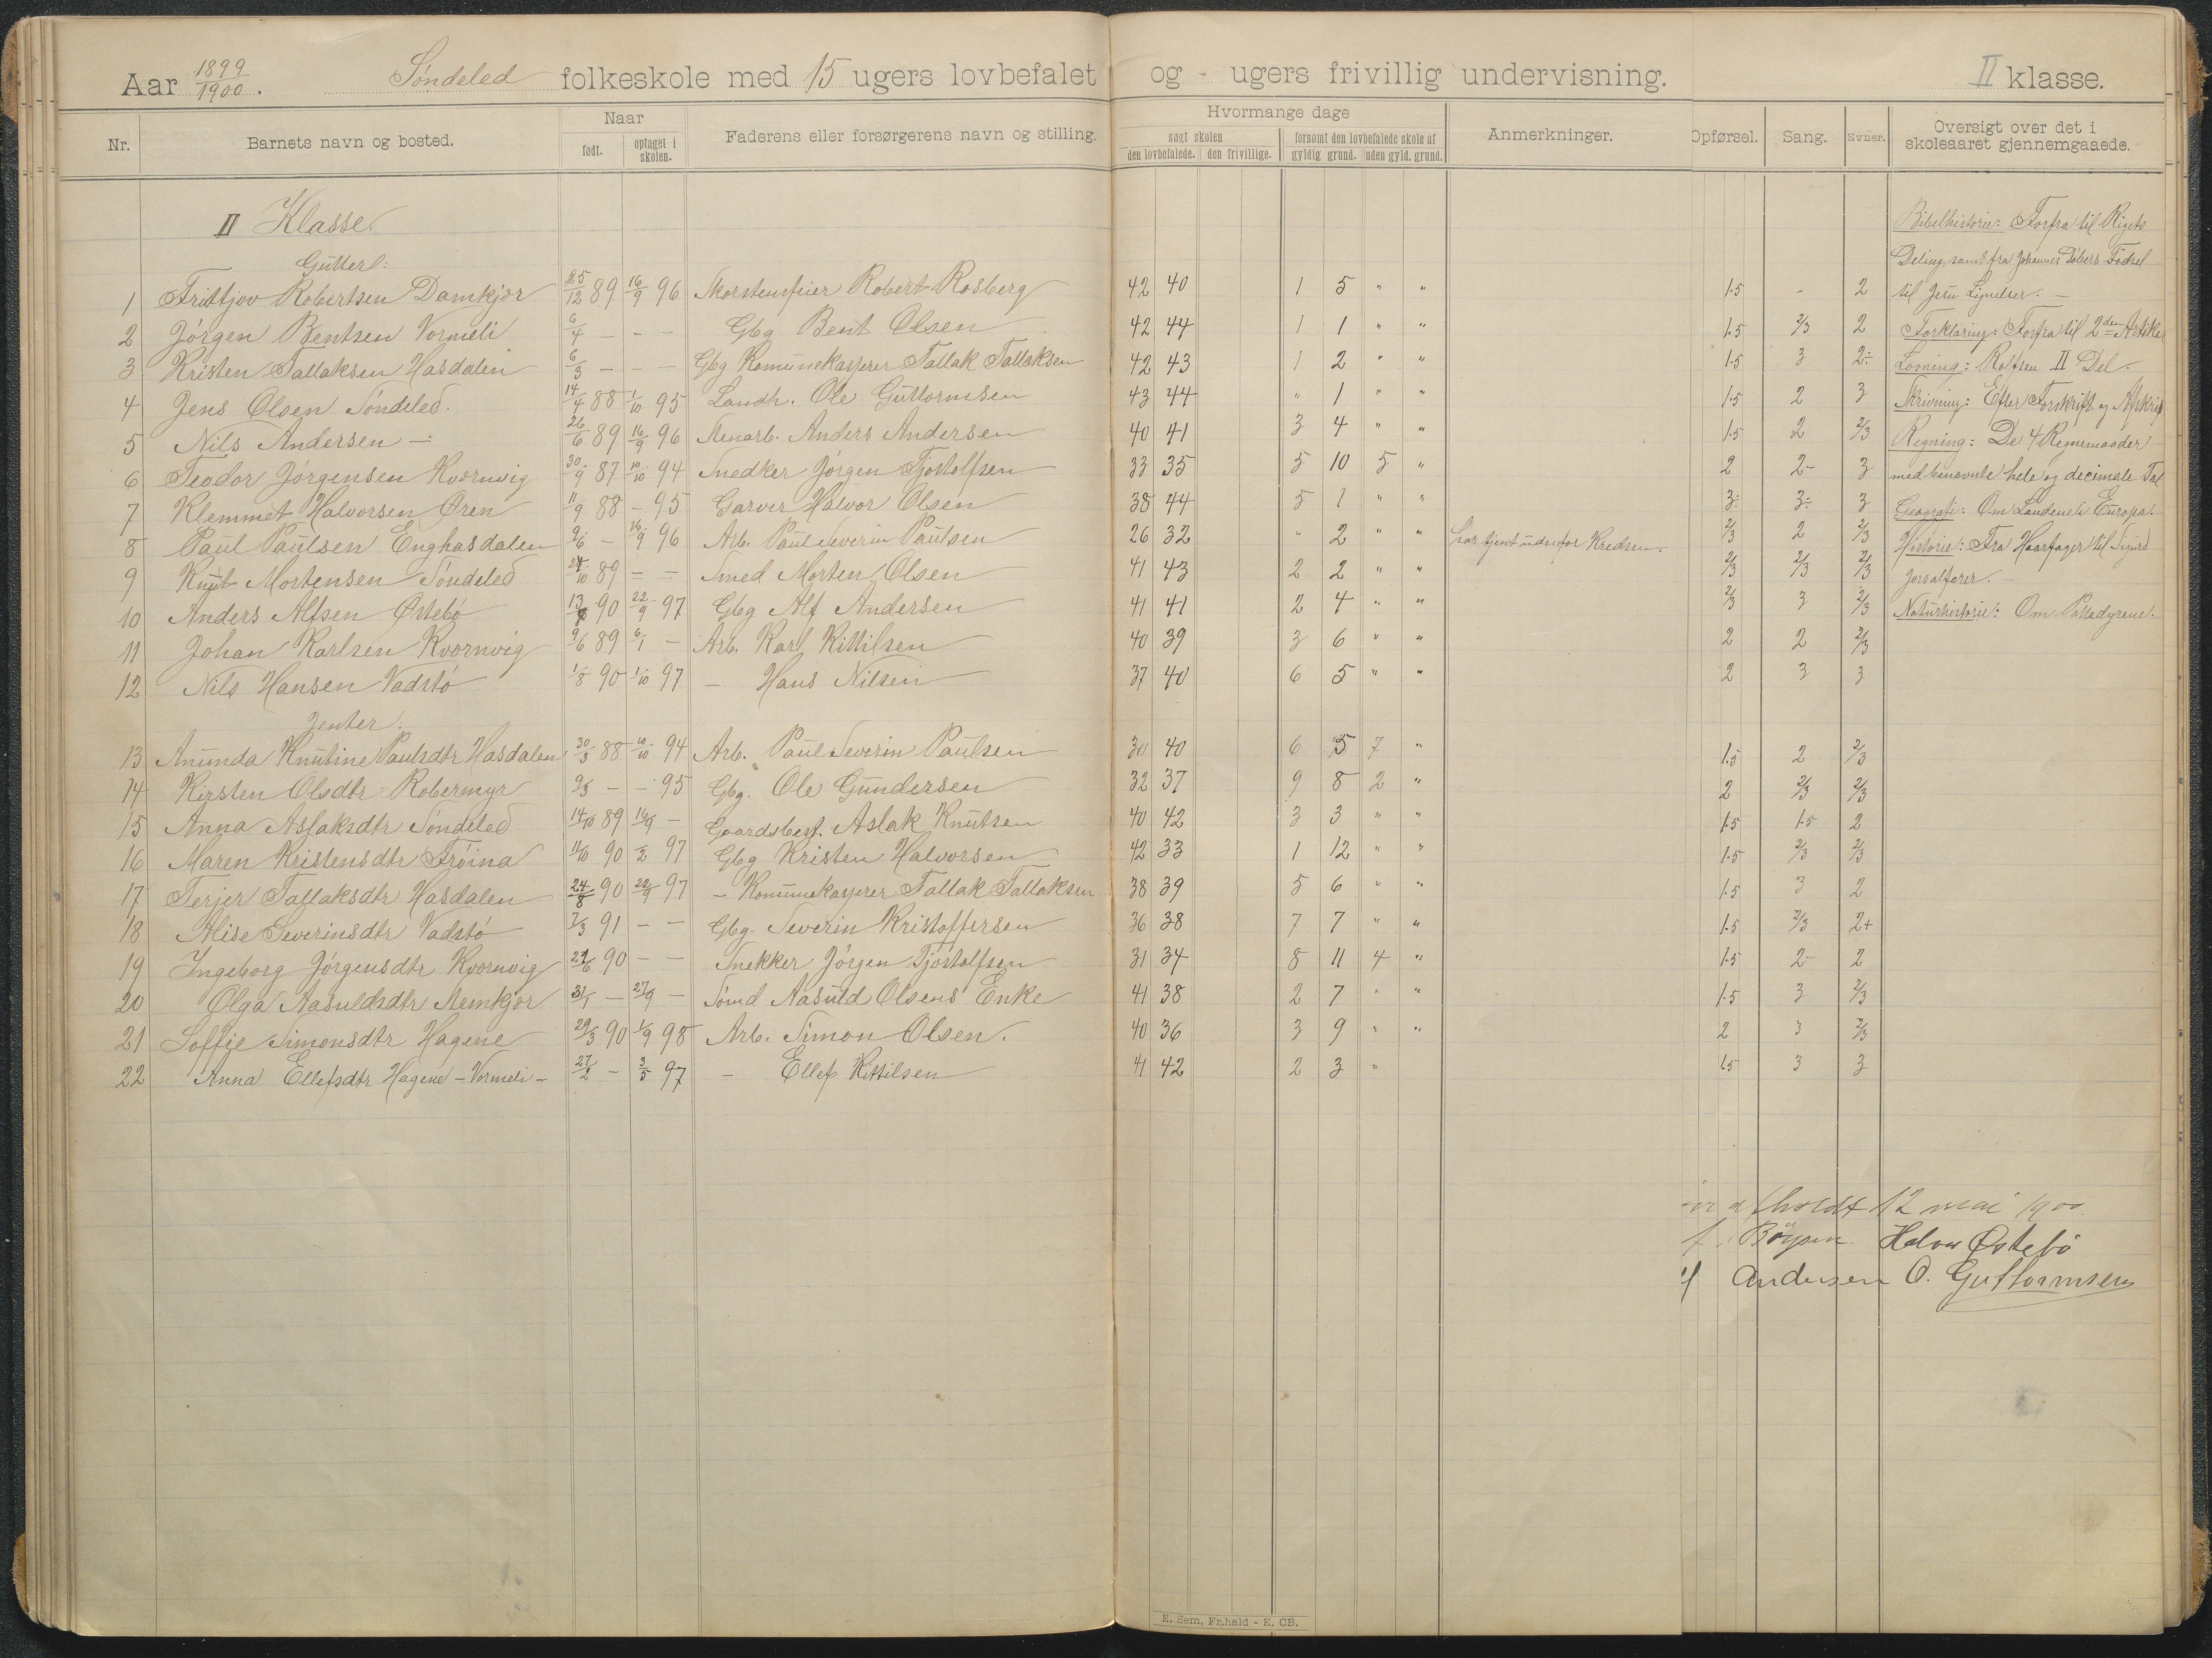 Aar 1899/1900. Söndeled folkeskole med 15 ugers lovbefalet og - ugers frivillig undervisning. II klasse.
Nr. Barnets navn og bosted. Naar født. optaget i skolen. Faderens eller forsørgerens navn og stilling. Hvormange dage søgt skolen den lovbefalede. den frivillige. forsømt den lovbefalede skole af gyldig grund. uden gyld. grund. Anmerkninger. Opførsel. Sang. Evner. Oversigt over det i skoleaaret gjennemgaaede.
II Klasse.
Gutter:
1 Frittjov Robertsen Damkjær 25/12 89 16/9 96 Skorstensfeier Robert Rosberg 42 40 1 5 " " 1.5 - 2
2 Jörgen Bentsen Vormeli 6/4 - - - Gbg Bent Olsen 42 44 1 1 " " 1.5 2/3 2
3 Kristen Tallaksen Hasdalen 6/3 - - - Gbg Komunekasserer Tallak Tallaksen 42 43 1 2 " " 1.5 3 2÷
4 Jens Olsen Söndeled. 14/4 88 1/10 95 Landh. Ole Guttormsen 43 44 " 1 " " 1.5 2 3
5 Nils Andersen -:- 26/6 89 16/9 96 Stenarb. Anders Andersen 40 41 3 4 " " 1.5 2 2/3
6 Teodor Jörgensen Kvernvig 30/9 87 10/10 94 Snedker Jörgen Tjöstolfsen 33 35 5 10 5 " 2 2- 3
7 Klemmet Halvorsen Ören 11/9 88 - 95 Garver Halvor Olsen 38 44 5 1 " " 3÷ 3÷ 3
8 Paul Paulsen Enghasdalen 9/6 - 16/9 96 Arb. Paul Severin Paulsen 26 32 " 2 " " har tjent udenfor Kredsen. 2/3 2 2/3
9 Knut Mortensen Söndeled 27/10 89 - - Smed Morten Olsen 41 43 2 2 " " 2/3 2/3 2/3
10 Anders Alfsen Østebö 90 22/9 97 Gbg Alf Andersen 41 41 2 4 " " 2/3 3 2/3
11 Johan Karlsen Kvernvig 9/6 89 6/1 - Arb. Karl Kittilsen 40 39 3 6 " " 2 2 2/3
12 Nils Hansen Vadstö 1/8 90 1/10 97 - Hans Nilsen 37 40 6 5 " " 2 3 3
Jenter:
13 Anunda Knutine Paulsdtr Hasdalen 30/3 88 10/10 94 Arb. Paul Severin Paulsen 30 40 6 5 7 " 1.5 2 2/3
14 Kirsten Olsdtr Robermyr 9/3 - - 95 Gbg. Ole Gundersen 32 37 9 8 2 " 2 2/3 2/3
15 Anna Aslaksdtr Söndeled 14/10 89 16/9 - Gaardsbest. Aslak Knutsen 40 42 3 3 " " 1.5 1.5 2
16 Maren Kristensdtr Fröina 11/10 90 97 Gbg Kristen Halvorsen 42 33 1 12 " " 1.5 2/3 2/3
17 Terjer Tallaksdtr Hasdalen 24/8 90 22/9 97 - Komunekasserer Tallak Tallaksen 38 39 5 6 " " 1.5 3 2
18 Alise Severinsdtr Vadstö 7/3 91 - - Gbg. Severin Kristoffersen 36 38 7 7 " " 1.5 2/3 2+
19 Ingeborg Jörgensdtr Kvernvig 90 - - Snekker Jörgen Tjöstolfsen 31 34 8 11 4 " 1.5 2- 2
20 Olga Aasuldsdtr Stemkjær 31/1 - 27/9 - Sömd Aasuld Olsens Enke 41 38 2 7 " " 1.5 3 2/3
21 Soffie Simonsdtr Hagene 29/3 90 1/9 98 Arb. Simon Olsen. 40 36 3 9 " " 2 3 2/3
22 Anna Ellefsdtr Hagene - Vormeli - 27/2 - 3/5 97 - Ellef Kittilsen 41 42 2 3 " 1.5 3 3
Bibelhistorie: Forfra til Rigets
Deling, samt fra Johannes Döbers Födsel
til Jesu Lignelser. -
Forklaring: Forfra til 2den Artikel
Læsning: Rolfsen II Del.
Skrivning: Efter Forskrift og Afskrift
Regning: De 4 Regnemaader
med benævnte hele og decimale Tal
Geografi: Om Landene i Europa.
Historie: Fra Haarfager til Sigurd
Jorsalfarer. -
Naturhistorie: Om Pattedyrene.
afholdt 12 mai 1900.
Halvor Østebö
Andersen O. Guttormsen
E. Sem, Fr.hald - E. CB.